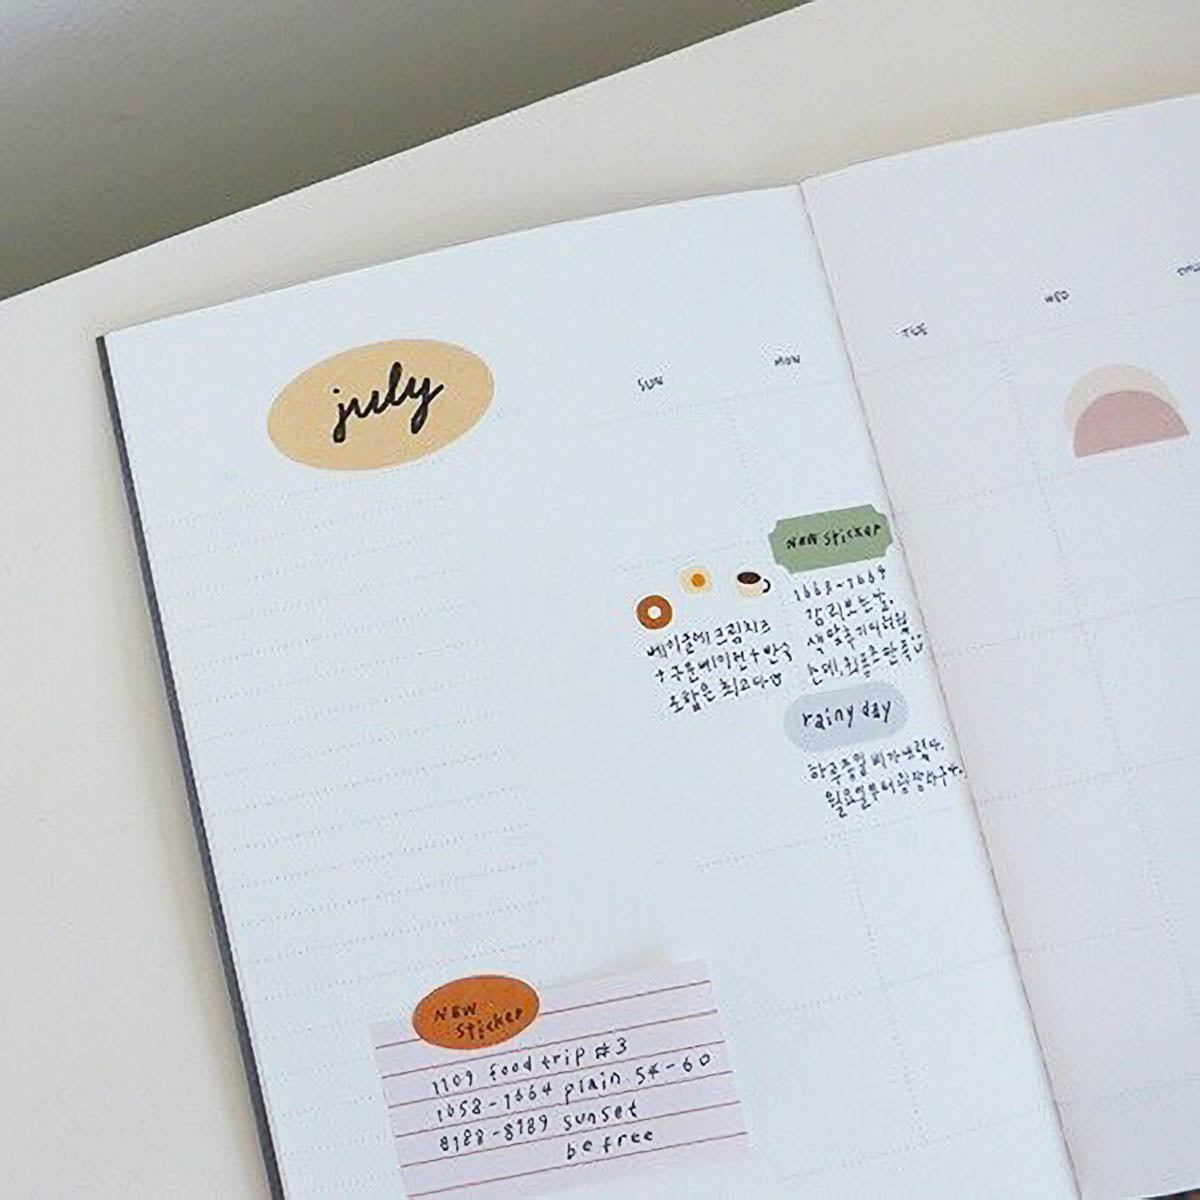 july
SUN
MON
TUE
WED
NEW sticker
1663-1664
감리보는날.
색 맞추기 어려웠
는데, 최종 만족
베이글에 크림치즈
+구운베이컨+반숙
조합은 최고다
rainy day
하루종일 비가 내렸다.
월요일부터
NEW
sticker
1109 food trip #3
1658-1664 plain 54-60
8188-8189 sunset
be free